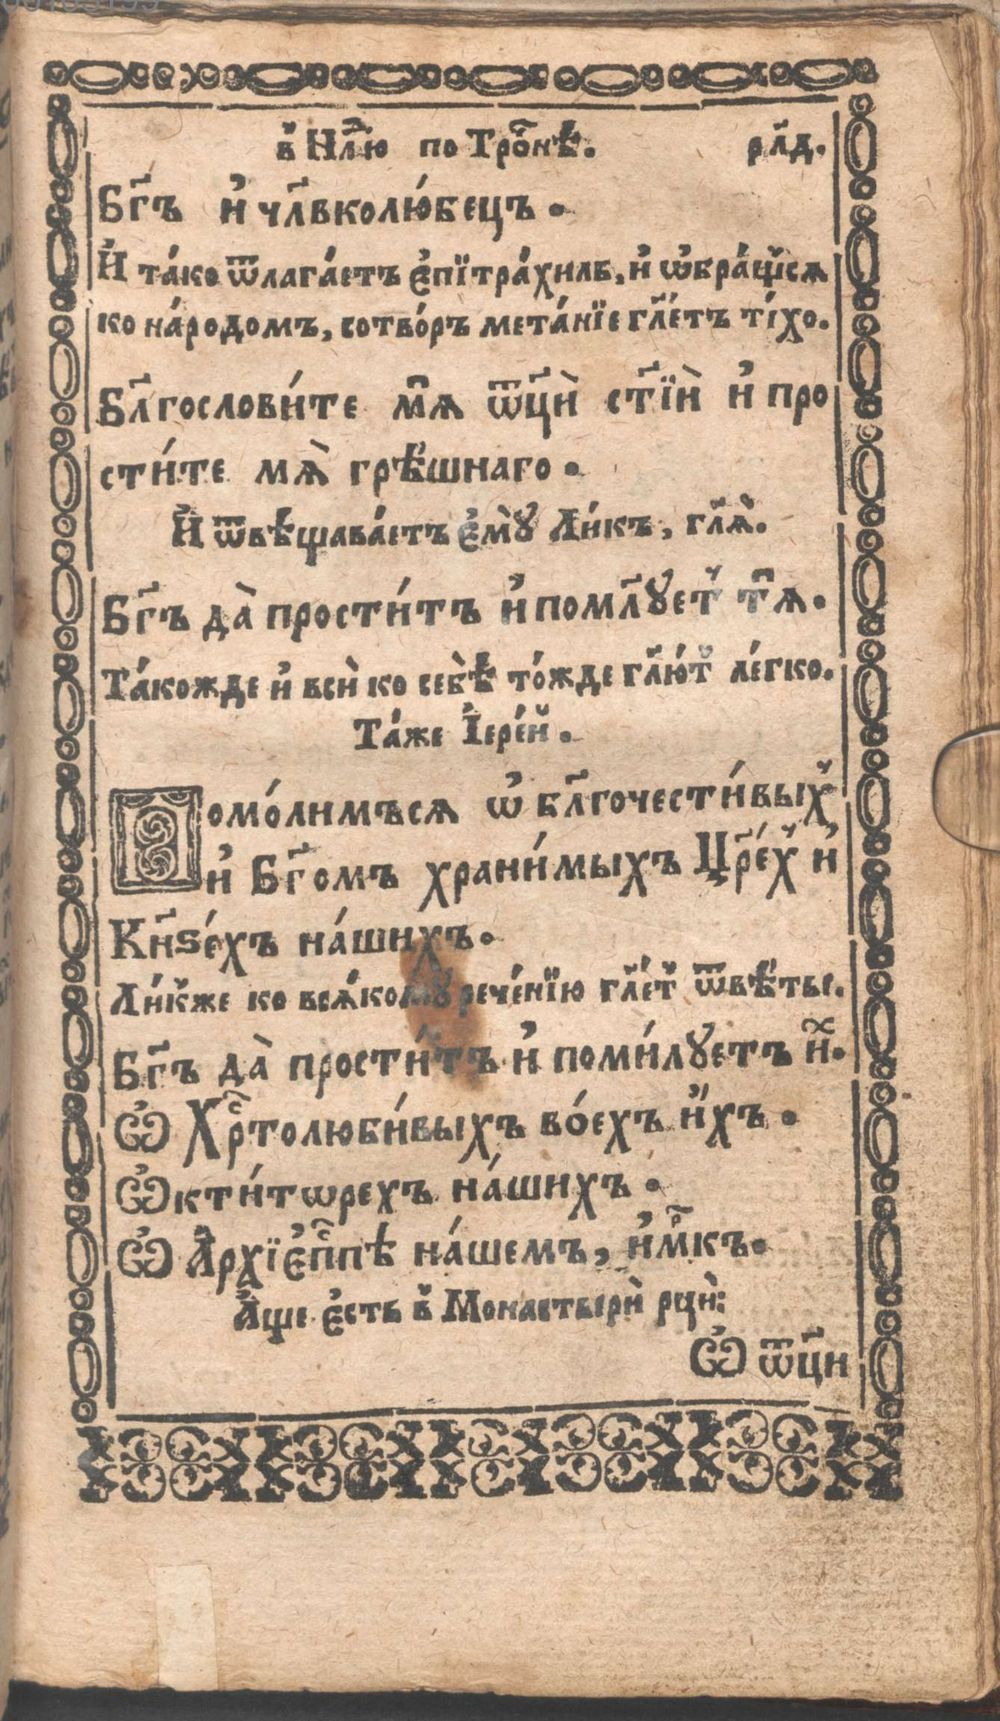 в̾ Нлⷣю по Трⷪ҇нѣ. рл҃д.
Бг҃ъ и҆ чл҃вколю́бецъ.
И҆ та́ко ѿлага́етъ є҆пїтра́хилъ, и҆ ѡ҆бра́щ̾сѧ
ко на́родомъ, сотво́ръ мета́нїе гл҃етъ тı́хо.
Бл҃гослови́те мѧ̀ ѿц҃и̇̀ ст҃їи̇̀ и҆ про
сти́те мѧ̀ грѣ́шнаго.
И҆ ѿвѣщава́етъ є҆мꙋ̀ Ли́къ, гл҃ѧ̀.
Бг҃ъ да̀ прости́тъ и҆ помл҃ꙋет̾ тѧ̀.
Та́кожде и҆ вси̇̀ ко себѣ̀ то́жде гл҃ю́т̾ ле́гко.
Та́же І҆ере́й.
Помо́лимъсѧ ѡ҆ бл҃гочести́выхⸯ
и҆ Бг҃омъ храни́мыхъ Цр҃е́хⸯ и҆
Кн҃ѕе́хъ на́шихъ.
Ли́к̾же ко всѧ́комꙋ̀ рече́нїю гл҃е́т̾ ѿвѣ́ты.
Бг҃ъ да̀ прости́тъ и҆ поми́лꙋетъ и҆̀х.
Ѽ Хрⷭ҇толюби́выхъ во́ехъ и҆́хъ.
Ѽ кти́тѡрехъ на́шихъ.
Ѽ А҆рхїє҆пⷭ҇пѣ на́шемъ, и҆м҃къ.
А҆́ще є҆́сть в̾ Монастьıри̇̀ рцы̀:
Ѽ ѿц҃и